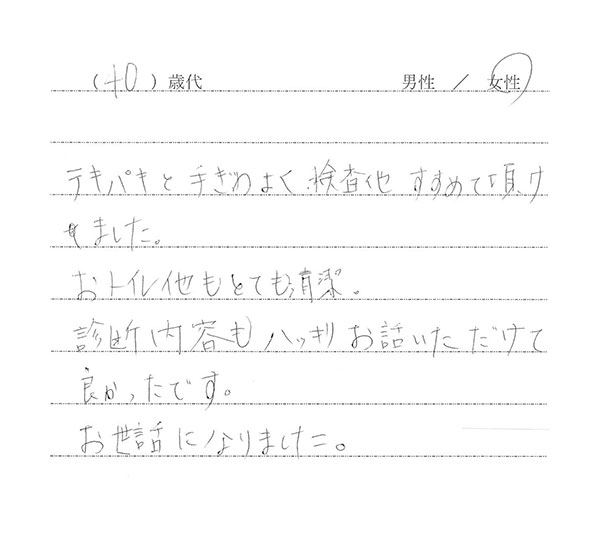 （40）歳代 男性 ／ 女性
テキパキと手ぎわよく検査他すすめて頂け
ました。
おトイレ他もとても清潔。
診断内容もハッキリお話いただけて
良かったです。
お世話になりました。